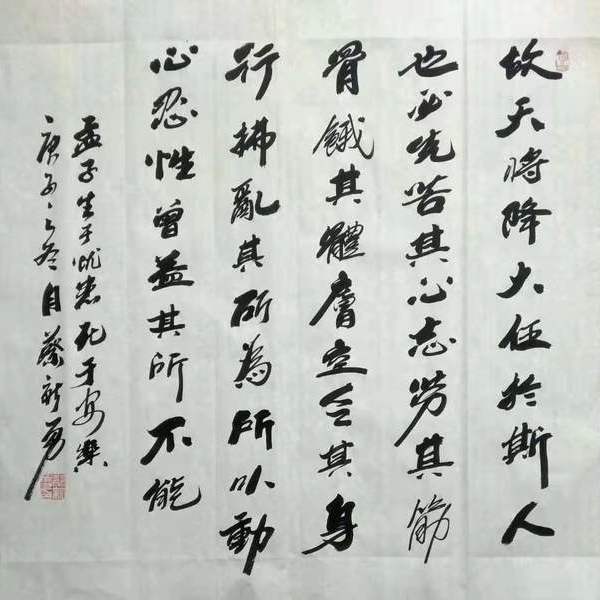 故天将降大任於斯人
也必先苦其心志劳其筋
骨餓其體膚空乏其身
行拂亂其所為所以動
心忍性曾益其所不能
孟子生于忧患死于安樂
庚子之冬月蔡新勇